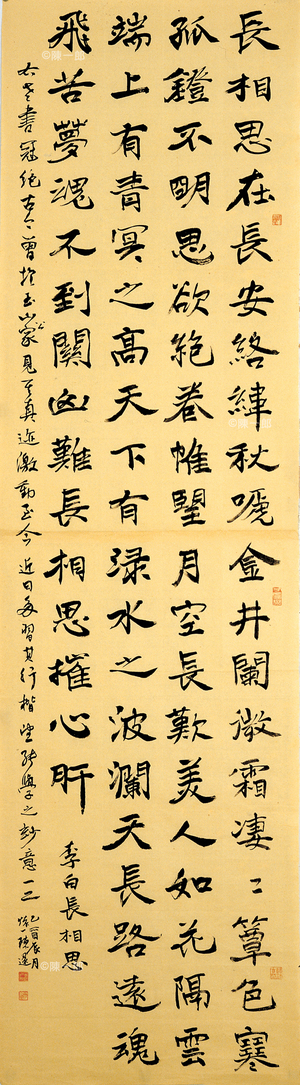 長相思在長安絡緯秋嗁金井闌微霜凄〻簟色寒
孤鐙不明思欲絶卷帷望月空長歎美人如花隔雲
端上有青冥之高天下有淥水之波瀾天長路遠魂
飛苦夢魂不到關山難長相思摧心肝
李白長相思
書冠絶古今曾於玉山家見其真迹激動至今近日每習其行楷望能學之妙意一二
乙酉辰月
©陳一郎
©陳一郎
©陳一郎
©陳一郎